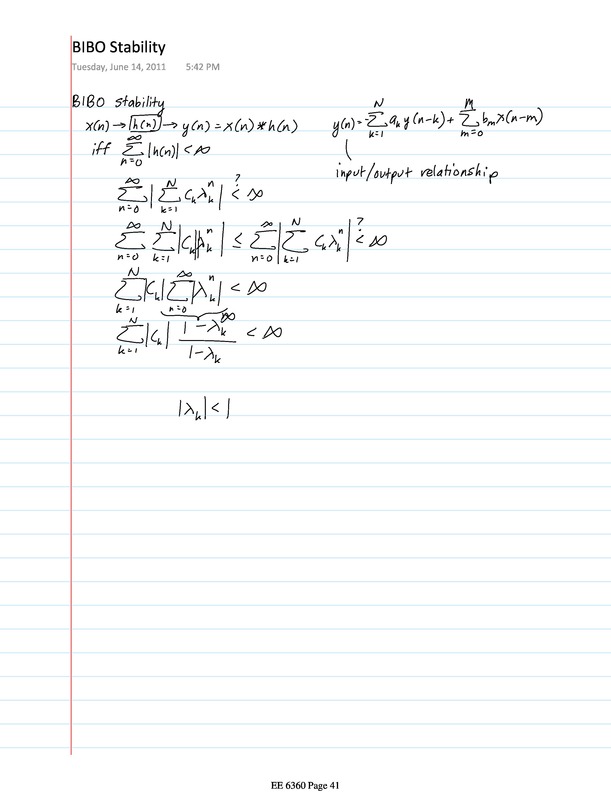 BIBO Stability
Tuesday, June 14, 2011 5:42 PM
BIBO stability
x(n) → [h(n)] → y(n) = x(n) * h(n)
y(n) = ∑_{k=1}^{N} a_k y(n-k) + ∑_{m=0}^{M} b_m x(n-m)
iff ∑_{n=0}^{∞} |h(n)| < ∞
input/output relationship
∑_{n=0}^{∞} | ∑_{k=1}^{N} C_k λ_k^n | <^? ∞
∑_{n=0}^{∞} ∑_{k=1}^{N} |C_k||λ_k^n| ≤ ∑_{n=0}^{∞} | ∑_{k=1}^{N} C_k λ_k^n | <^? ∞
∑_{k=1}^{N} |C_k| ∑_{n=0}^{∞} |λ_k^n| < ∞
∑_{k=1}^{N} |C_k| (1 - λ_k^∞)/(1 - λ_k) < ∞
|λ_k| < 1
EE 6360 Page 41